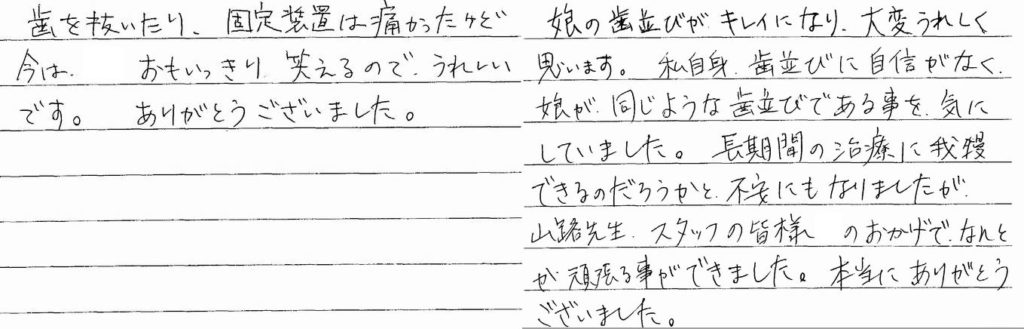 歯を抜いたり、固定装置は痛かったけど
今は、おもいっきり、笑えるので、うれしい
です。 ありがとうございました。
娘の歯並びが、キレイになり、大変うれしく
思います。 私自身、歯並びに自信がなく、
娘が、同じような歯並びである事を、気に
していました。 長期間の治療に我慢
できるのだろうかと、不安にもなりましたが、
山路先生、スタッフの皆様 のおかげで、なんと
か頑張る事ができました。 本当にありがとう
ございました。